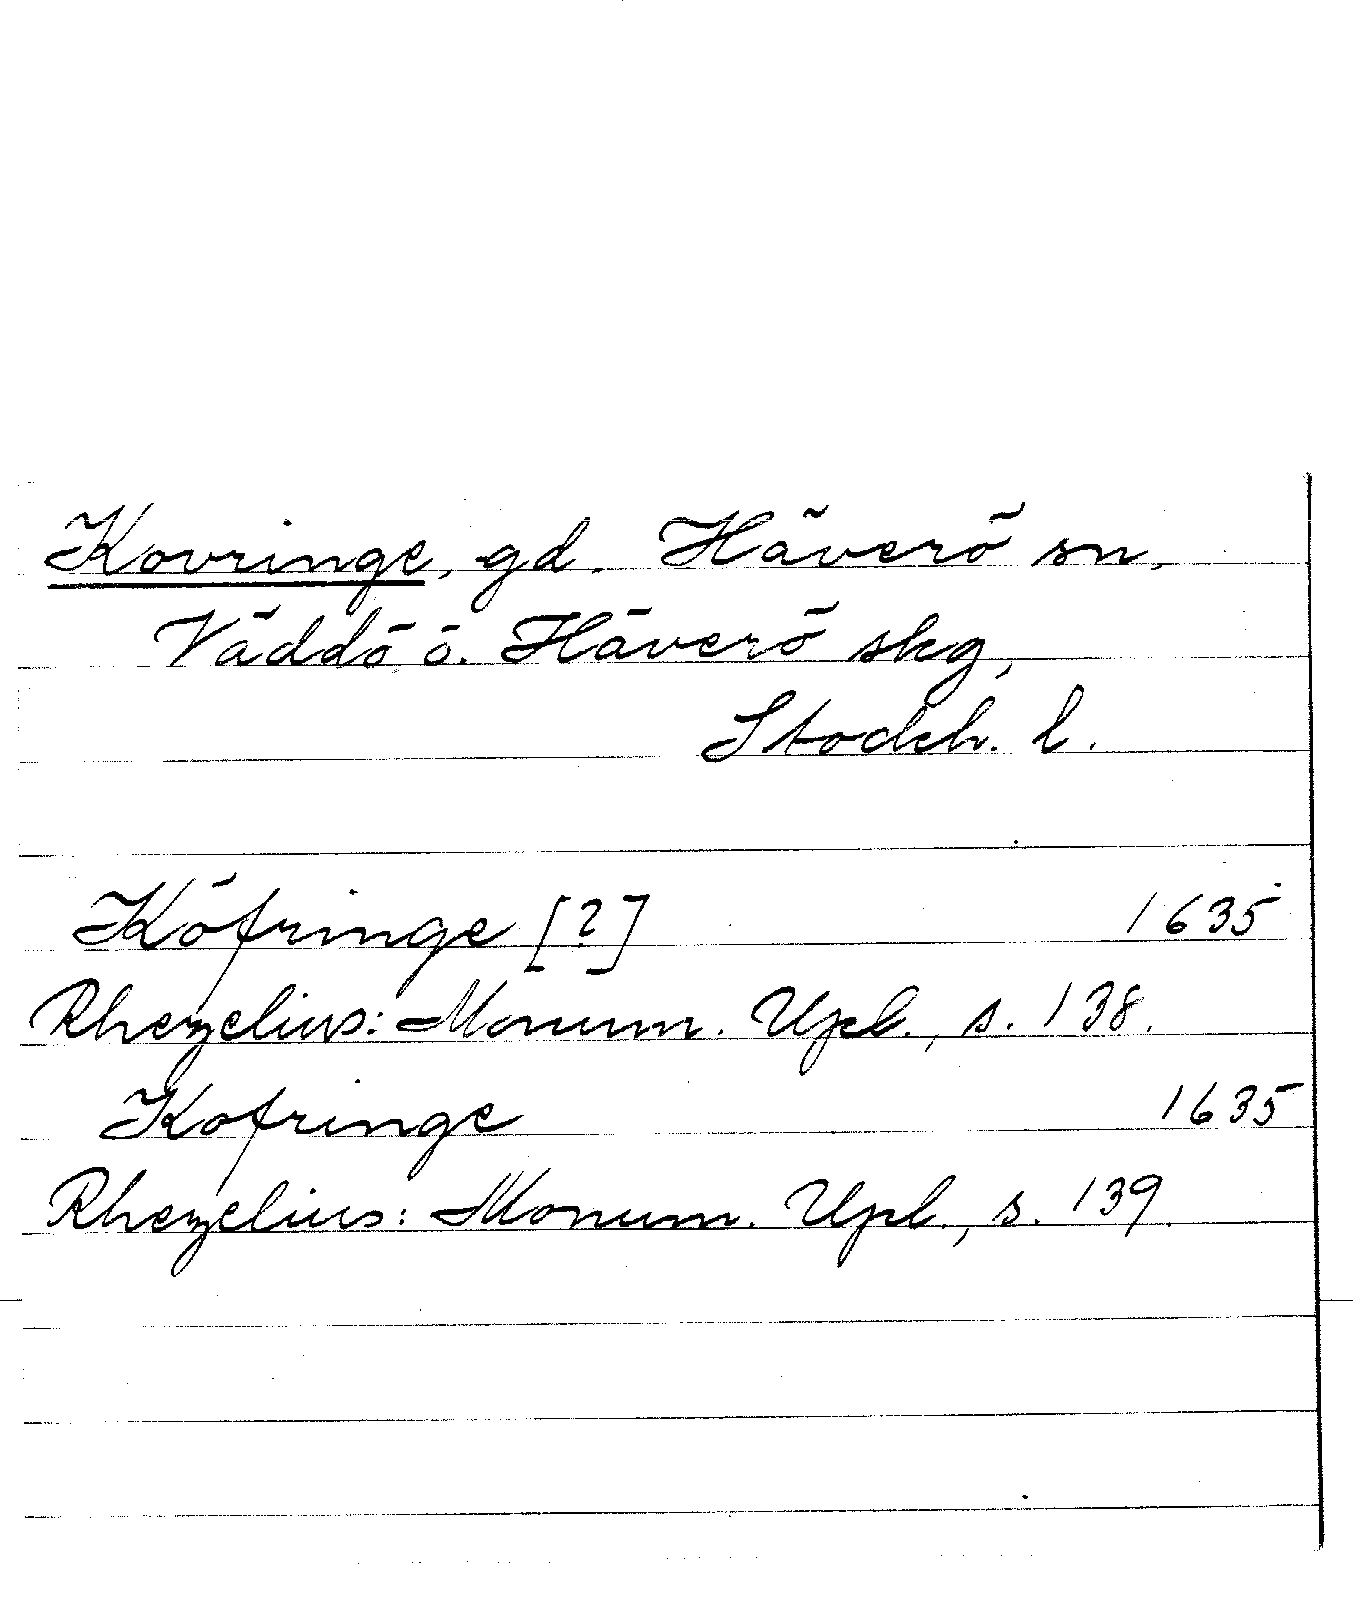 Kovringe, gd. Häverö sn,
Väddö ö. Häverö skg,
Stockh. l.
Köfringe [?] 1635
Rhezelius: Monum. Upl., s. 138.
Kofringe 1635
Rhezelius: Monum. Upl., s. 139.